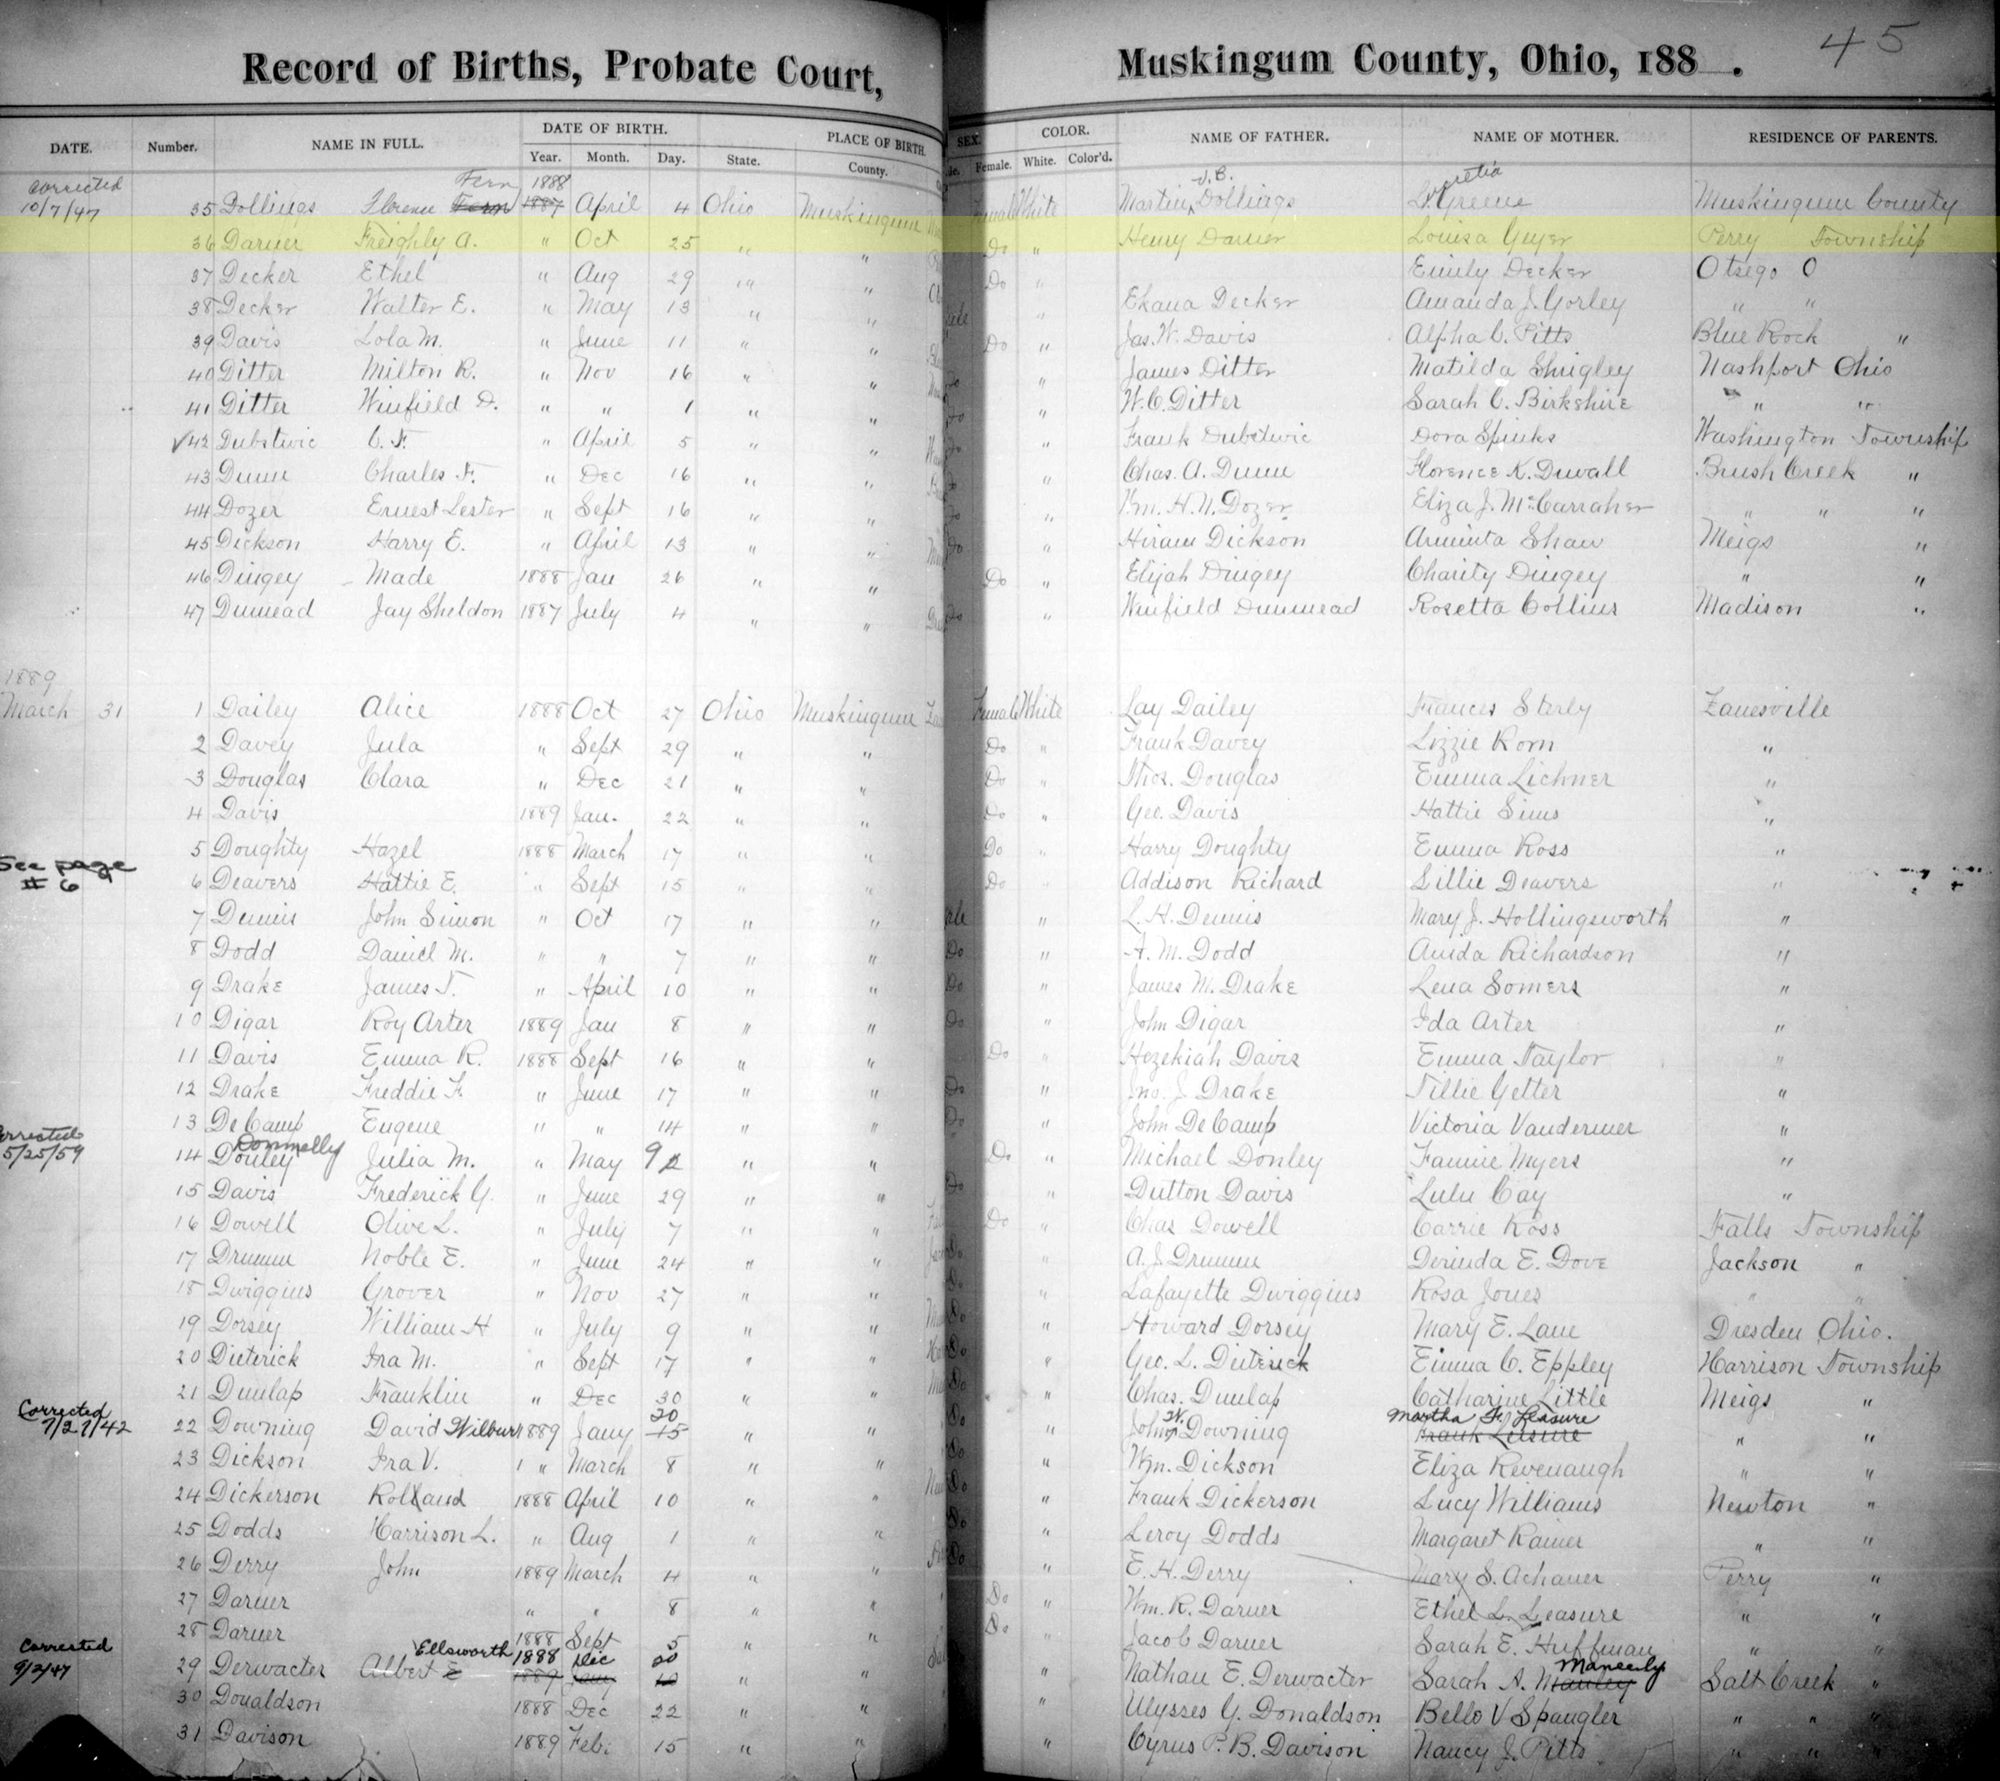 45
Record of Births, Probate Court, Muskingum County, Ohio, 188 .
DATE. Number. NAME IN FULL. DATE OF BIRTH. PLACE OF BIRTH. SEX. COLOR. NAME OF FATHER. NAME OF MOTHER. RESIDENCE OF PARENTS.
Year. Month. Day. State. County. Female. White. Color'd.
Corrected Fern 1888 J.B. Lucretia
10/7/47 35 Dollings Florence Fern 1887 April 4 Ohio Muskingum Female White Martin Dollings L. Greene Muskingum County
36 Darner Freighly A. " Oct 25 " " Do " Henry Darner Louisa Geyer Perry Township
37 Decker Ethel " Aug 29 " " Do " Emily Decker Otsego O
38 Decker Walter E. " May 13 " " " Ekana Decker Amanda J. Gorley " "
39 Davis Lola M. " June 11 " " Do " Jas. W. Davis Alpha C. Pitts Blue Rock "
40 Ditter Milton R. " Nov 16 " " " James Ditter Matilda Shrigley Nashport Ohio
41 Ditter Winfield D. " " 1 " " " W. C. Ditter Sarah C. Birkshire " "
✓42 Dubtwic C. F. " April 5 " " " Frank Dubtwic Dora Spinks Washington Township
43 Dunn Charles F. " Dec 16 " " " Chas. A. Dunn Florence K. Duvall Brush Creek "
44 Dozer Ernest Lester " Sept 16 " " Do " Wm. H. N. Dozer Eliza J. McCarraher " " "
45 Dickson Harry E. " April 13 " " Do " Hiram Dickson Arminta Shaw Meigs "
46 Dingey Made 1888 Jan 26 " " Do " Elijah Dingey Charity Dingey " "
47 Dunnead Jay Sheldon 1887 July 4 " " Do " Winfield Dunnead Rosetta Collins Madison "
1889
March 31 1 Dailey Alice 1888 Oct 27 Ohio Muskingum Female White Lay Dailey Frances Sterly Zanesville
2 Davey Jula " Sept 29 " " Do " Frank Davey Lizzie Korn "
3 Douglas Clara " Dec 21 " " Do " Thos. Douglas Emma Lichner "
4 Davis 1889 Jan. 22 " " Do " Geo. Davis Hattie Sims "
5 Doughty Hazel 1888 March 17 " " Do " Harry Doughty Emma Ross "
See page
# 6 6 Deavers Hattie E. " Sept 15 " " Do " Addison Richard Lillie Deavers "
7 Dennis John Simon " Oct 17 " " " L. H. Dennis Mary J. Hollingsworth "
8 Dodd Daniel M. " " 7 " " Do " A. M. Dodd Anida Richardson "
9 Drake James T. " April 10 " " Do " James M. Drake Lena Somers "
10 Digar Roy Arter 1889 Jan 8 " " Do " John Digar Ida Arter "
11 Davis Emma R. 1888 Sept 16 " " Do " Hezekiah Davis Emma Taylor "
12 Drake Freddie F. " June 17 " " Do " Jno. J. Drake Tillie Getter "
13 DeCamp Eugene " " 14 " " Do " John DeCamp Victoria Vandermer "
Corrected Donnelly
5/25/59 14 Donley Julia M. " May 9 2 " " Do " Michael Donley Fannie Myers "
15 Davis Frederick G. " June 29 " " Do " Dutton Davis Lulu Cay "
16 Dowell Olive L. " July 7 " " Do " Chas Dowell Carrie Ross Falls Township
17 Drumm Noble E. " June 24 " " Do " A. J. Drumm Derinda E. Dove Jackson "
18 Dwiggins Grover " Nov 27 " " Do " Lafayette Dwiggins Rosa Jones " "
19 Dorsey William H " July 9 " " Do " Howard Dorsey Mary E. Lane Dresden Ohio.
20 Dieterick Ira M. " Sept 17 " " Do " Geo. L. Dieterick Emma C. Eppley Harrison Township
21 Dunlap Franklin " Dec 30 " " Do " Chas. Dunlap Catharine Little Meigs "
Corrected 20 W. Martha F. Leasure
7/27/42 22 Downing David Wilbur 1889 Jany 15 " " Do " John Downing Frank Leisure " "
23 Dickson Ira V. " March 8 " " Do " Wm. Dickson Eliza Revenaugh " "
24 Dickerson Rolland 1888 April 10 " " Do " Frank Dickerson Lucy Williams Newton "
25 Dodds Harrison L. " Aug 1 " " Do " Leroy Dodds Margaret Rainer " "
26 Derry John 1889 March 4 " " Do " E. H. Derry Mary S. Achauer Perry "
27 Darner " " 8 " " Do " Wm. R. Darner Ethel L. Leasure " "
28 Darner 1888 Sept 5 " " Do " Jacob Darner Sarah E. Huffman " "
Corrected Ellsworth 1888 Dec 20 Maneely
9/2/47 29 Derwacter Albert E 1889 Jany 10 " " " Nathan E. Derwacter Sarah A. Manley Salt Creek "
30 Donaldson 1888 Dec 22 " " " Ulysses G. Donaldson Belle V Spangler " " "
31 Davison 1889 Feb. 15 " " " Cyrus P. B. Davison Nancy J. Pitts " " "